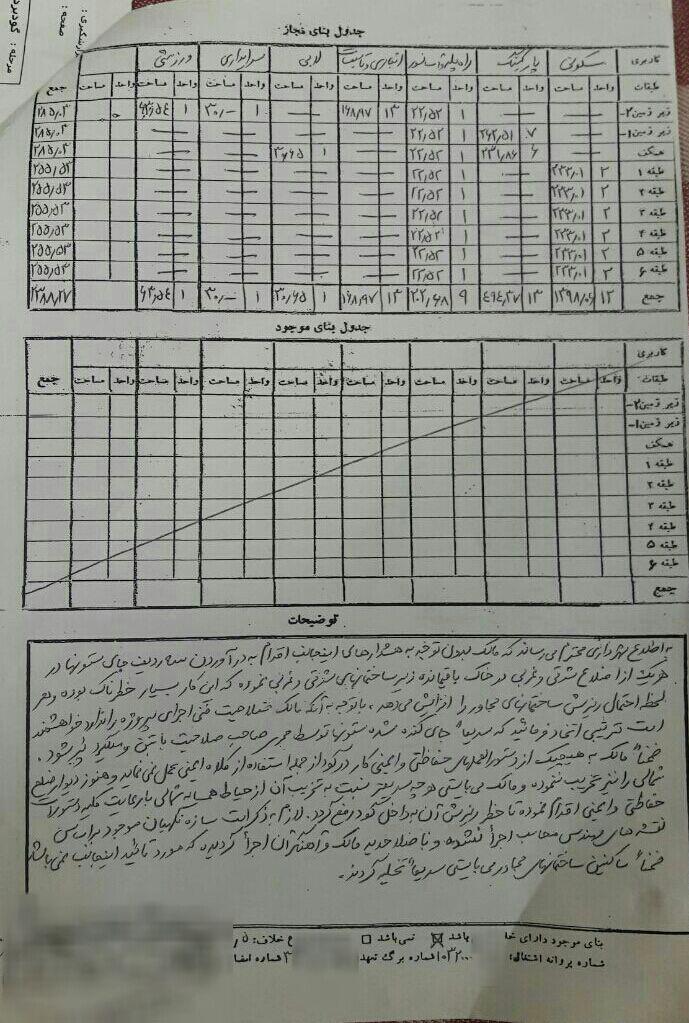 مرحله : گودبرد
صفحه :
جدول بنای مجاز
کاربری سکونی پارکینگ راه پله و آسانسور انباری و تاسیسات لابی سرایداری ورزشی
طبقات واحد مساحت واحد مساحت واحد مساحت واحد مساحت واحد مساحت واحد مساحت واحد مساحت جمع
زیر زمین ۲- — — ۱ ۲۲٫۵۲ ۱۳ ۱۶۸٫۹۷ — ۱ ۳۰٫۰ ۱ ۶۳٫۵۴ ۲۸۵٫۰۳
زیر زمین ۱- — ۷ ۲۶۲٫۵۱ ۱ ۲۲٫۵۲ — — — — ۲۸۵٫۰۳
همکف — ۶ ۲۳۱٫۸۶ ۱ ۲۲٫۵۲ — ۱ ۳۰٫۶۵ — — ۲۸۵٫۰۳
طبقه ۱ ۲ ۲۳۳٫۰۱ — ۱ ۲۲٫۵۲ — — — — ۲۵۵٫۵۳
طبقه ۲ ۲ ۲۳۳٫۰۱ — ۱ ۲۲٫۵۲ — — — — ۲۵۵٫۵۳
طبقه ۳ ۲ ۲۳۳٫۰۱ — ۱ ۲۲٫۵۲ — — — — ۲۵۵٫۵۳
طبقه ۴ ۲ ۲۳۳٫۰۱ — ۱ ۲۲٫۵۲ — — — — ۲۵۵٫۵۳
طبقه ۵ ۲ ۲۳۳٫۰۱ — ۱ ۲۲٫۵۲ — — — — ۲۵۵٫۵۳
طبقه ۶ ۲ ۲۳۳٫۰۱ — ۱ ۲۲٫۵۲ — — — — ۲۵۵٫۵۳
جمع ۱۲ ۱۳۹۸٫۰۶ ۱۳ ۴۹۴٫۳۷ ۹ ۲۰۲٫۶۸ ۱۳ ۱۶۸٫۹۷ ۱ ۳۰٫۶۵ ۱ ۳۰٫۰ ۱ ۶۳٫۵۴ ۲۳۸۸٫۲۷
جدول بنای موجود
کاربری
طبقات واحد مساحت واحد مساحت واحد مساحت واحد مساحت واحد مساحت واحد مساحت واحد مساحت جمع
زیر زمین ۲-
زیر زمین ۱-
همکف
طبقه ۱
طبقه ۲
طبقه ۳
طبقه ۴
طبقه ۵
طبقه ۶
جمع
توضیحات
به اطلاع شهرداری محترم می رساند که مالک بدون توجه به هشدارهای اینجانب اقدام به در آوردن سه ردیف جای ستونها در
هریک از اضلاع شرقی و غربی در خاک باقیمانده زیر ساختمانهای شرقی و غربی نموده که این کار بسیار خطرناک بوده و هر
لحظه احتمال ریزش ساختمانهای مجاور را افزایش می دهد ، با توجه به آنکه مالک صلاحیت فنی اجرای پروژه را ندارد خواهشمند
است ترتیبی اتخاذ فرمائید که سریعاً جای کنده شده ستونها توسط مجری صاحب صلاحیت با بتن و میلگرد پر شود .
ضمناً مالک به هیچیک از دستورالعملهای حفاظتی و ایمنی کار در گود از جمله استفاده از کلاه ایمنی عمل نمی نماید و هنوز دیوار ضلع
شمالی را نیز تخریب ننموده و مالک می بایستی هر چه سریعتر نسبت به تخریب آن از حیاط همسایه شمالی با رعایت کلیه دستورات
حفاظتی و ایمنی اقدام نموده تا خطر ریزش آن به داخل گود رفع گردد. لازم به ذکر است سازه نگهبان موجود بر اساس
نقشه های مهندس محاسب اجرا نشده و با صلاحدید مالک و آهنگران اجرا گردیده که مورد تائید اینجانب نمی باشد
ضمناً ساکنین ساختمانهای مجاور می بایستی سریعاً تخلیه گردند.
بنای موجود دارای خلا باشد ☒ نمی باشد ☐ ع خلاف:
شماره پروانه اشتغال: ۱۰۳۲۰۰۰ شماره برگ تعهد شماره امضا